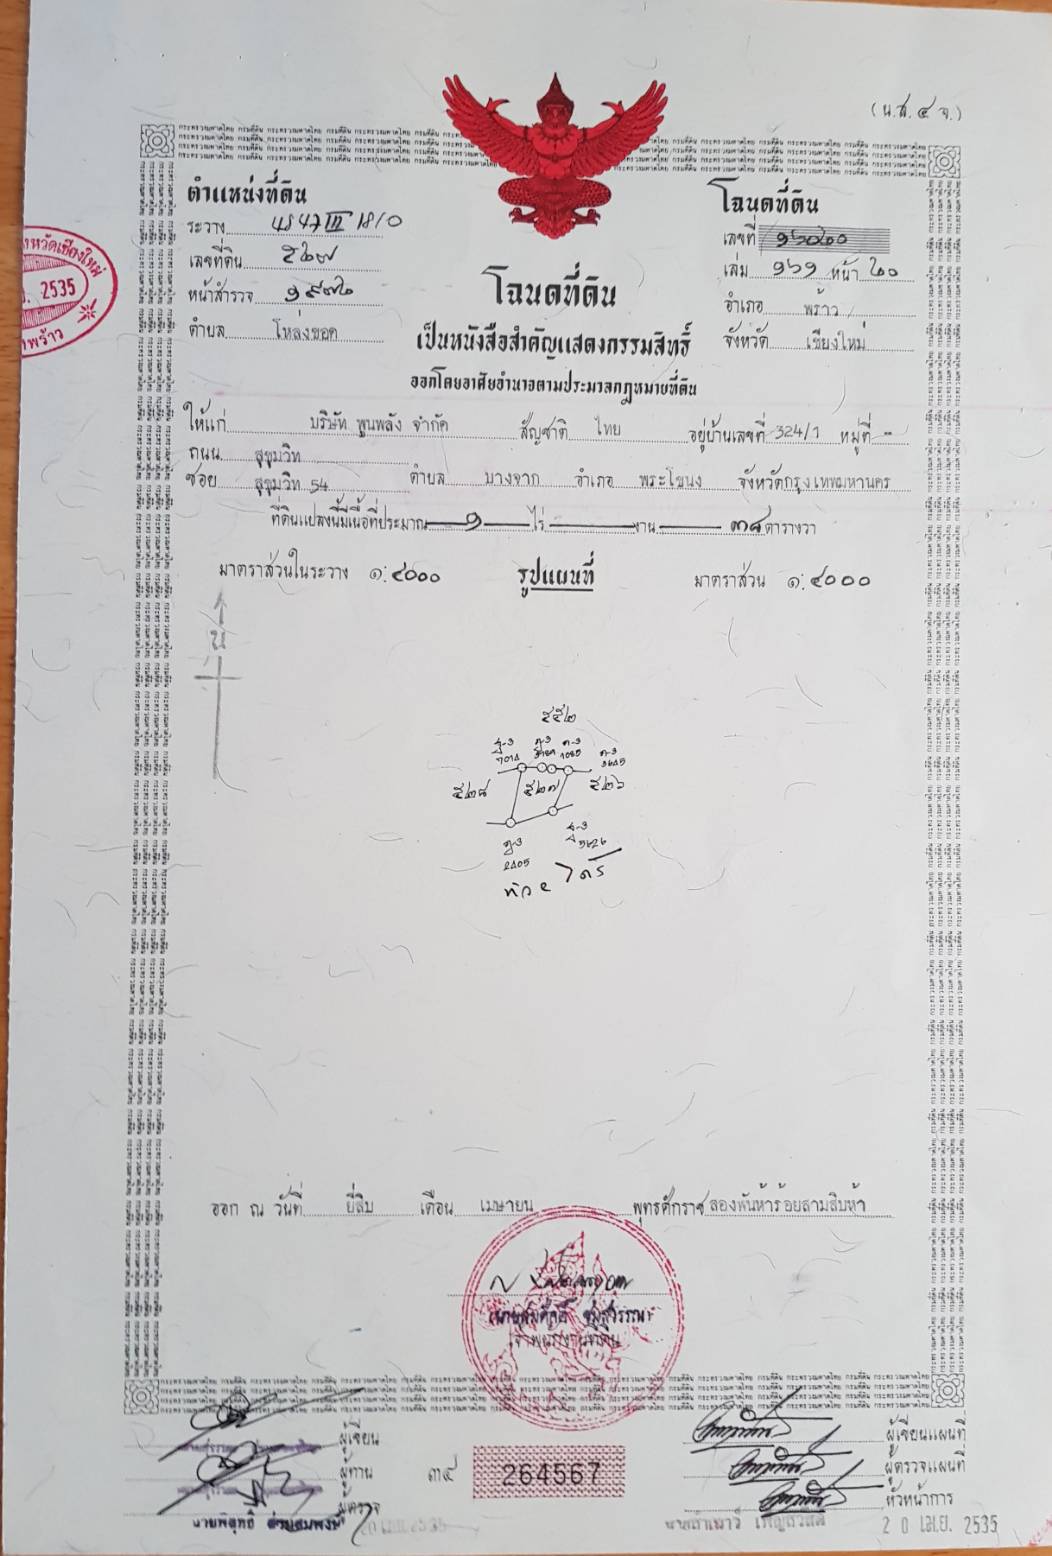 (น.ส.๔ จ.)
ตำแหน่งที่ดิน
ระวาง 4847 III 1810
เลขที่ดิน ๕๒๗
หน้าสำรวจ ๑๙๗๒
ตำบล โหล่งขอด
โฉนดที่ดิน
เลขที่ ๑๖๐๒๐
เล่ม ๑๖๑ หน้า ๒๐
อำเภอ พร้าว
จังหวัด เชียงใหม่
2535
พร้าว
โฉนดที่ดิน
เป็นหนังสือสำคัญแสดงกรรมสิทธิ์
ออกโดยอาศัยอำนาจตามประมวลกฎหมายที่ดิน
ให้แก่ บริษัท พูนพลัง จำกัด สัญชาติ ไทย อยู่บ้านเลขที่ 324/1 หมู่ที่ -
ถนน สุขุมวิท
ซอย สุขุมวิท 54 ตำบล บางจาก อำเภอ พระโขนง จังหวัดกรุงเทพมหานคร
ที่ดินแปลงนี้มีเนื้อที่ประมาณ ๑ ไร่ งาน ๓๘ ตารางวา
มาตราส่วนในระวาง ๑:๔๐๐๐ รูปแผนที่ มาตราส่วน ๑:๔๐๐๐
น
๕๕๒
๕๒๘ ๕๒๗ ๕๒๖
ออก ณ วันที่ ยี่สิบ เดือน เมษายน พุทธศักราช สองพันห้าร้อยสามสิบห้า
เจ้าพนักงานที่ดิน
ผู้เขียน
ผู้ทาน
ผู้ตรวจ
๓๔
264567
ผู้เขียนแผนที่
ผู้ตรวจแผนที่
หัวหน้าการ
20 เม.ย. 2535